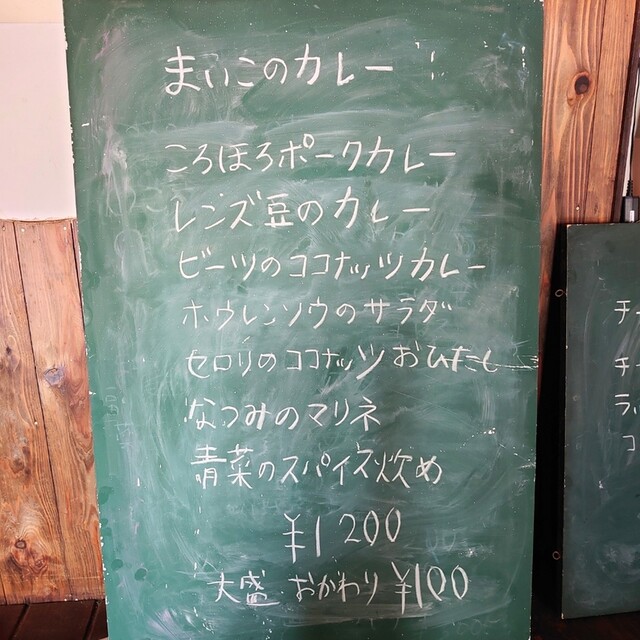 まいこのカレー
ころほろポークカレー
レンズ豆のカレー
ビーツのココナッツカレー
ホウレンソウのサラダ
セロリのココナッツおひたし
なつみのマリネ
青菜のスパイス炒め
¥1200
大盛・おかわり¥100
チー
チ
ラ
コ